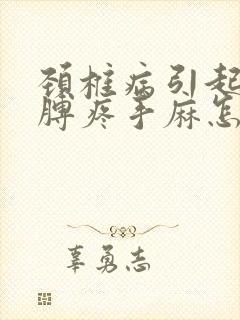 颈椎病引起
脾疼手麻怎
辜勇志